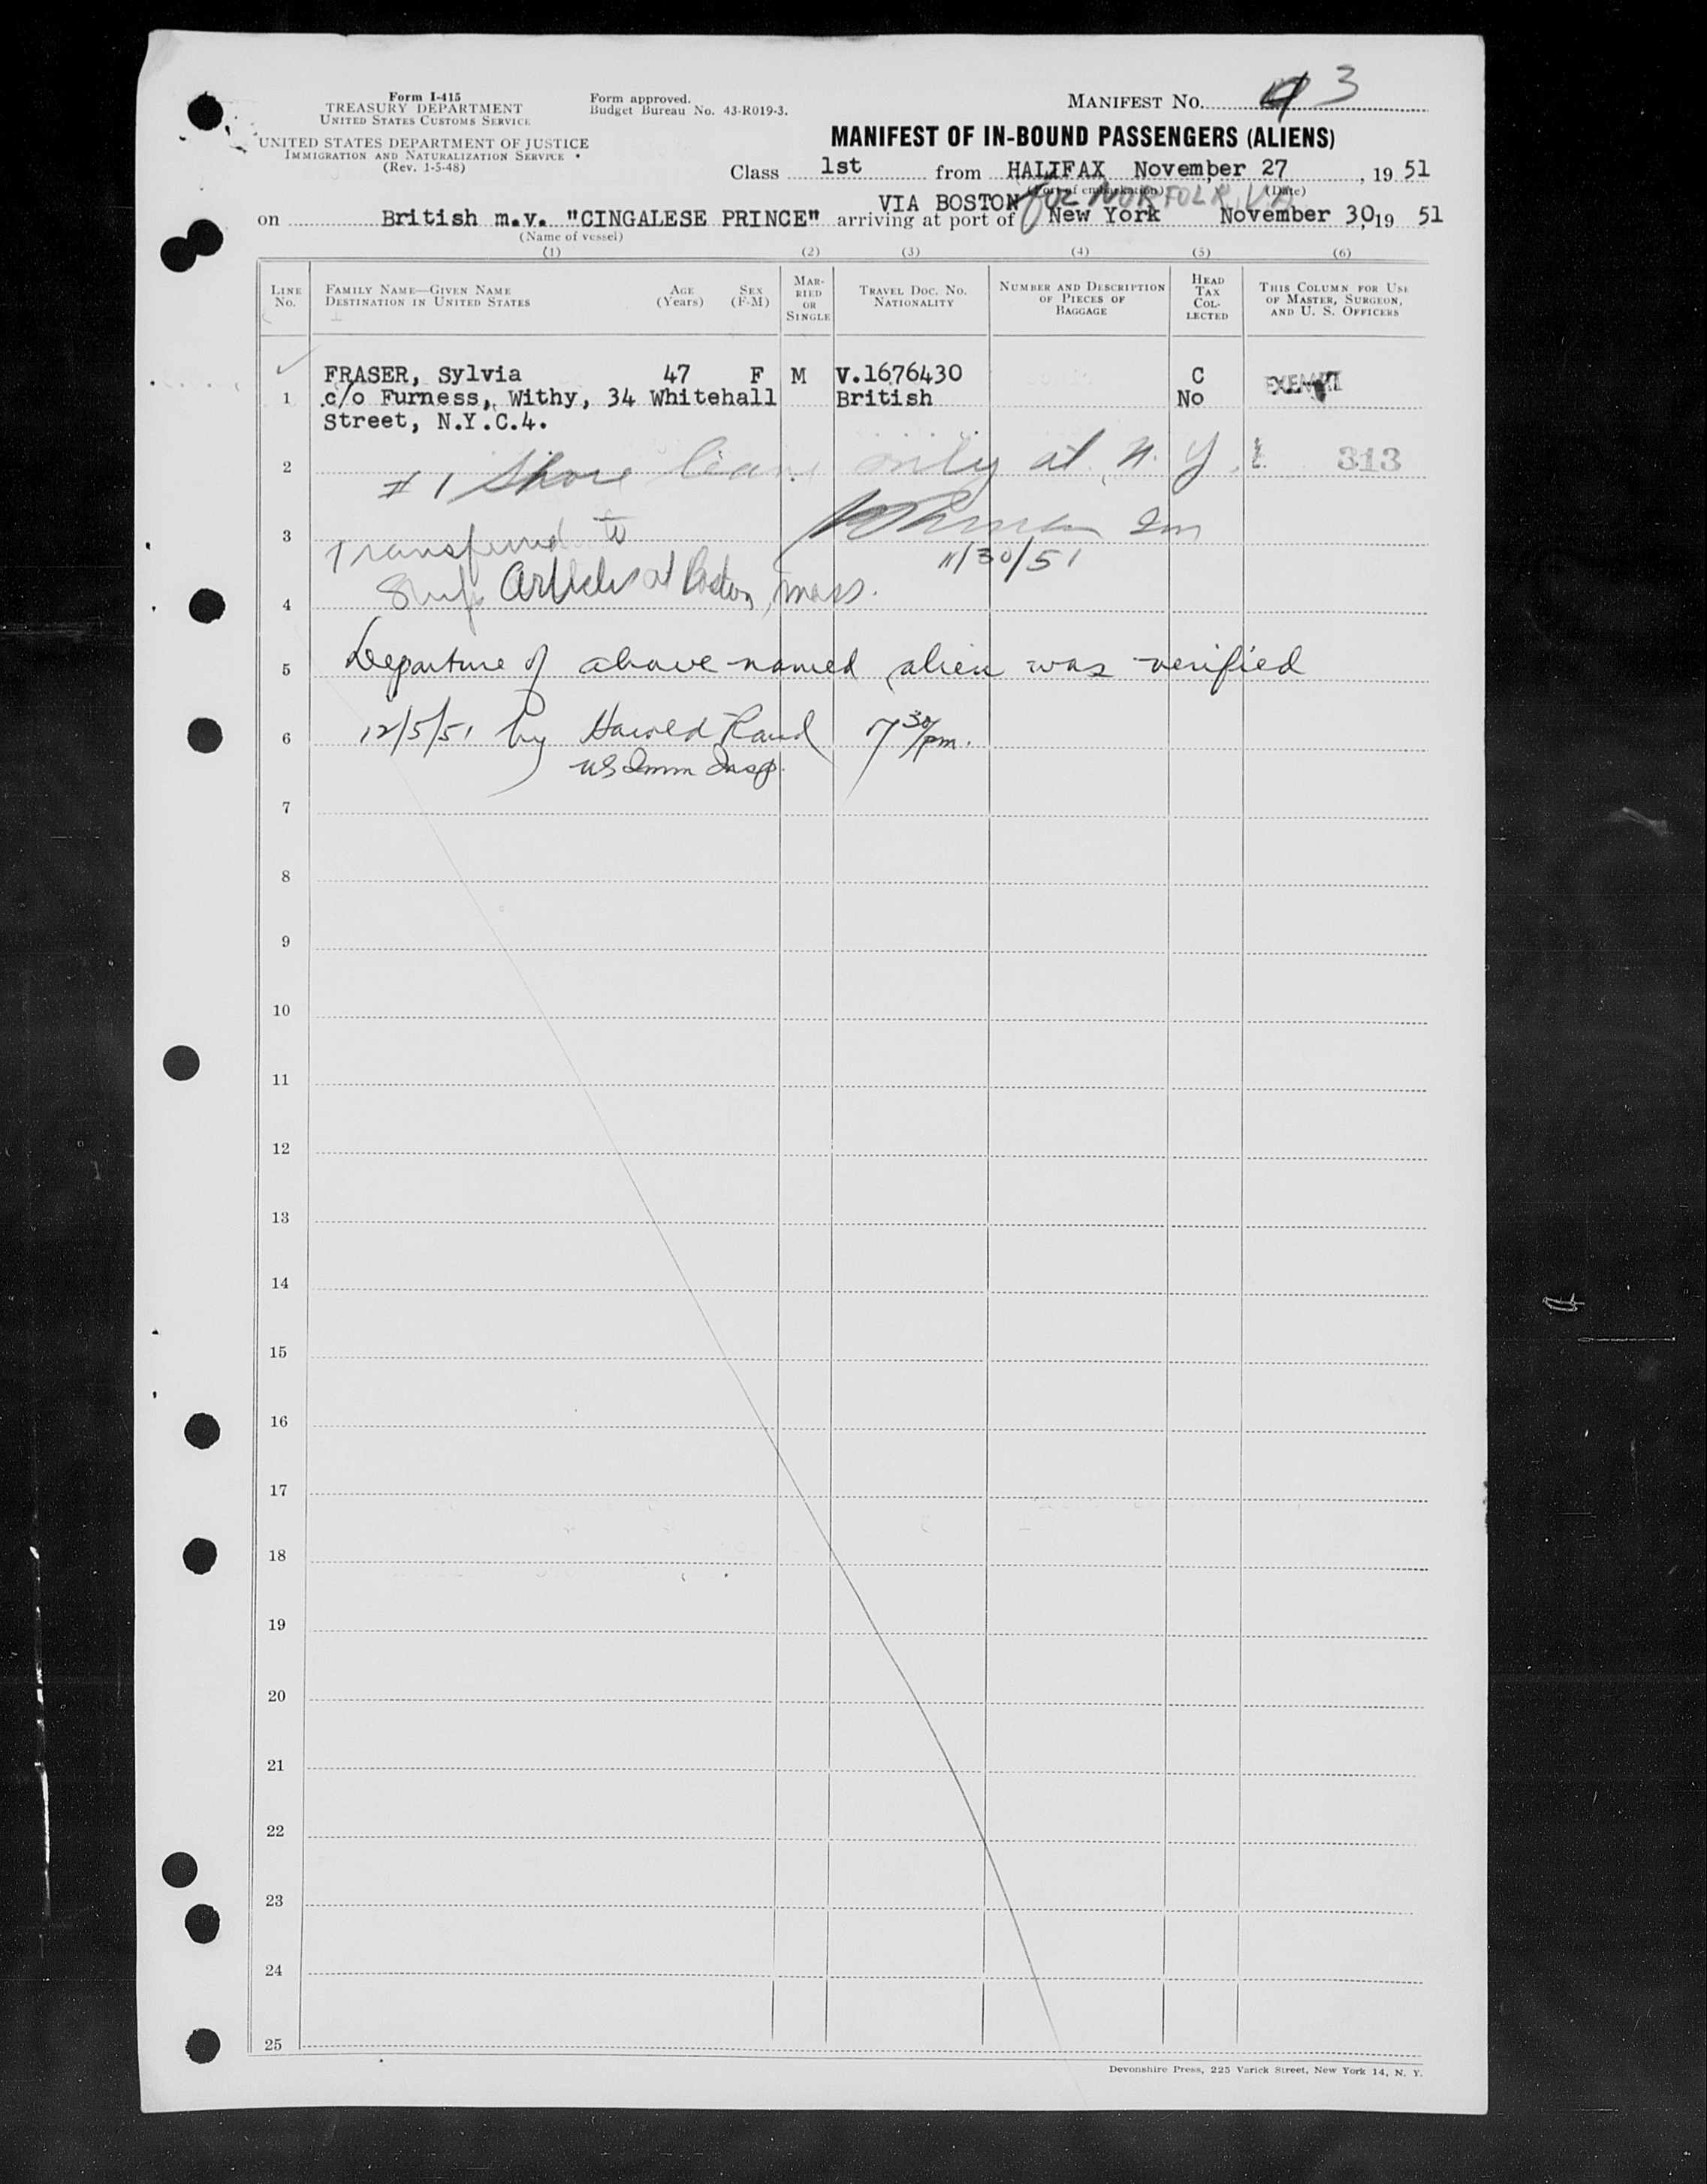 Form I-415
TREASURY DEPARTMENT
UNITED STATES CUSTOMS SERVICE
UNITED STATES DEPARTMENT OF JUSTICE
IMMIGRATION AND NATURALIZATION SERVICE
(Rev. 1-5-48)
Form approved.
Budget Bureau No. 43-R019-3.
MANIFEST NO. 3
MANIFEST OF IN-BOUND PASSENGERS (ALIENS)
Class 1st from HALIFAX November 27, 19 51
(Port of embarkation) (Date)
VIA BOSTON for NORFOLK, VA
on British m.v. "CINGALESE PRINCE" arriving at port of New York November 30, 19 51
(Name of vessel)
(1) (2) (3) (4) (5) (6)
LINE No.
FAMILY NAME—GIVEN NAME
DESTINATION IN UNITED STATES
AGE (Years)
SEX (F-M)
MARRIED OR SINGLE
TRAVEL DOC. NO. NATIONALITY
NUMBER AND DESCRIPTION OF PIECES OF BAGGAGE
HEAD TAX COLLECTED
THIS COLUMN FOR USE OF MASTER, SURGEON, AND U. S. OFFICERS
FRASER, Sylvia 47 F M V.1676430 C EXEMPT
1 c/o Furness, Withy, 34 Whitehall British No
Street, N.Y.C.4.
2 #1 Shore leave only at N.Y. 313
3 Transferred to Imm
11/30/51
4 Ship Articles at Boston, Mass.
5 Departure of above named alien was verified
6 12/5/51 by Harold Rand 7 30/pm.
US Imm Insp.
7
8
9
10
11
12
13
14
15
16
17
18
19
20
21
22
23
24
25
Devonshire Press, 225 Varick Street, New York 14, N. Y.